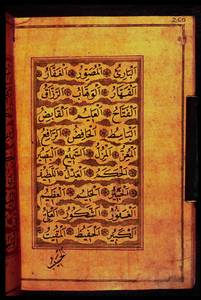 260
البارئ المصور الغفار
القهار الوهاب الرزاق
الفتاح العليم القابض
الباسط الخافض الرافع
المعز المذل السميع البصير
الحكم العدل اللطيف
الخبير الحليم العظيم
الغفور الشكور العلي
الكبير الحفيظ المقيت